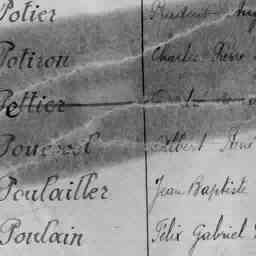 Potier
Potiron Charles Pierre
Pottier
Poucresl Albert René
Poulailler Jean Baptiste
Poulain Félix Gabriel